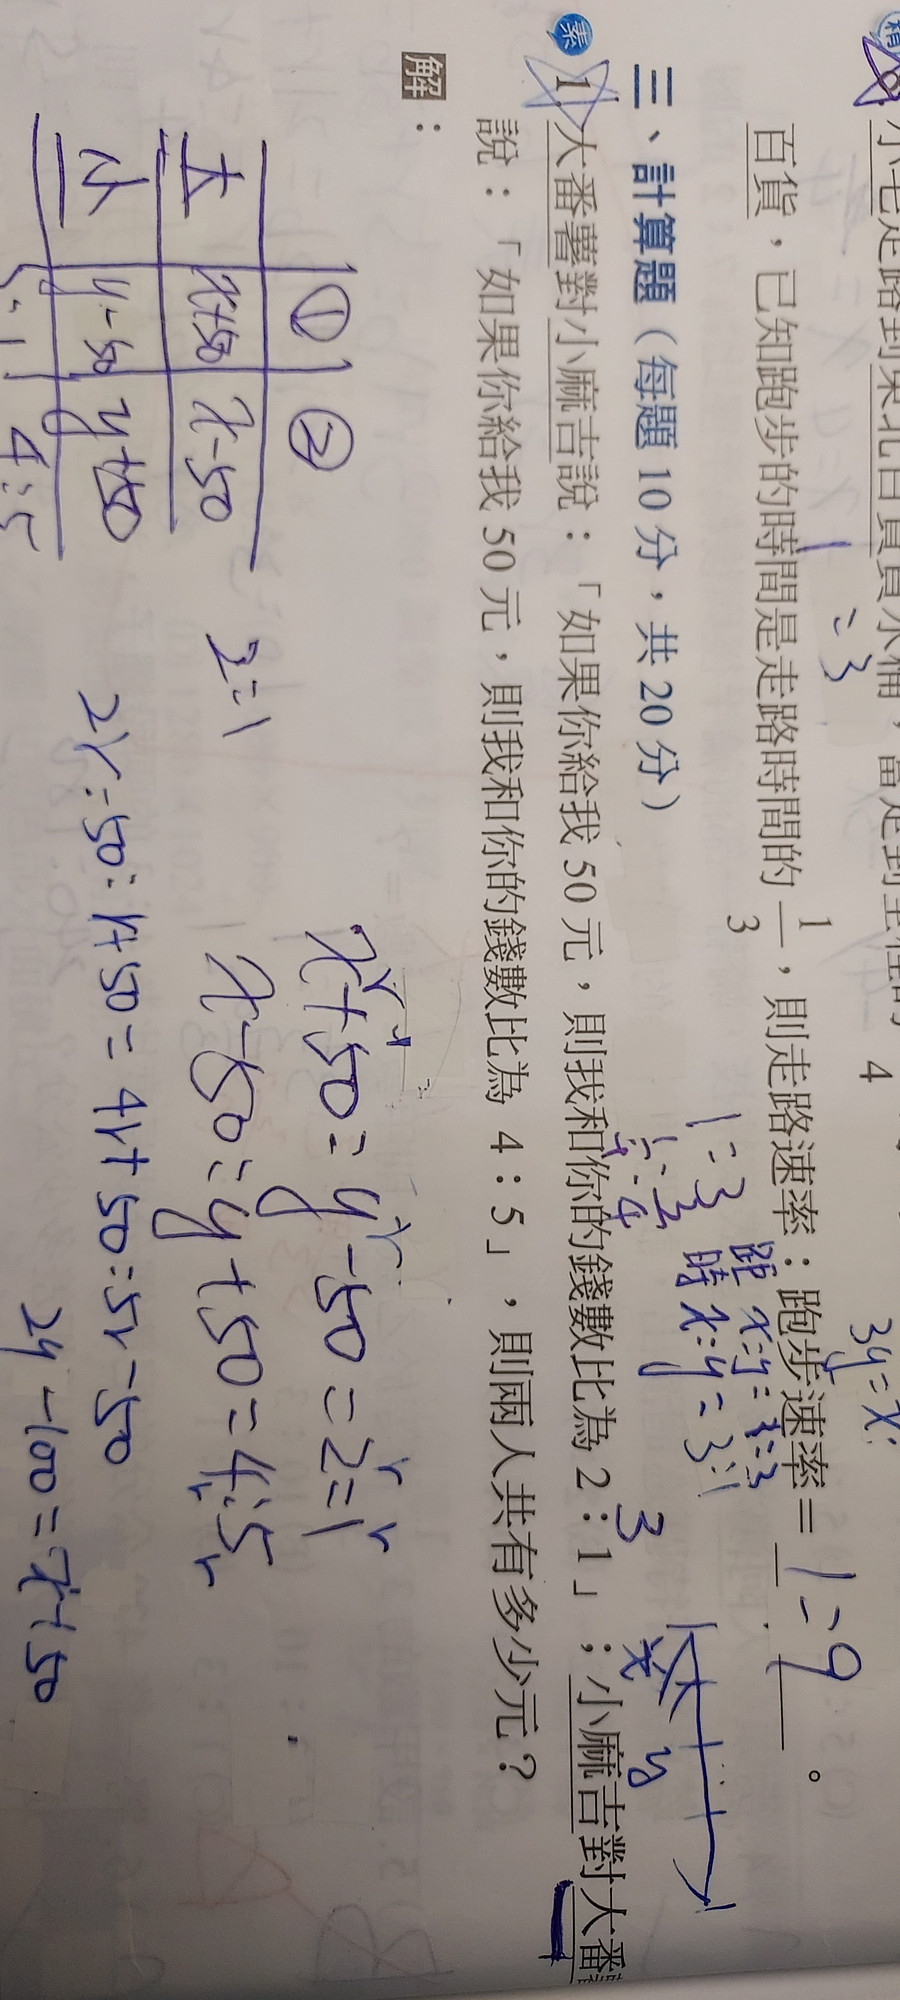 走路到東北百貨買水桶，當走到全程的
4
3y=x
=3
百貨，已知跑步的時間是走路時間的 1/3，則走路速率：跑步速率= 1:9 。
1:3
距 x:y=1:3
時 x:y=3:1
三、計算題（每題 10 分，共 20 分）
素 1. 大番薯對小麻吉說：「如果你給我 50 元，則我和你的錢數比為 2：1」；小麻吉對大番
3
x y
說：「如果你給我 50 元，則我和你的錢數比為 4：5」，則兩人共有多少元？
解：
① ②
大 x+50 x-50
小 y-50 y+50
4:5
2:1
x+50:y-50=2:1
x-50:y+50=4:5
2r-50:r+50=4r+50:5r-50
2y-100=x+50